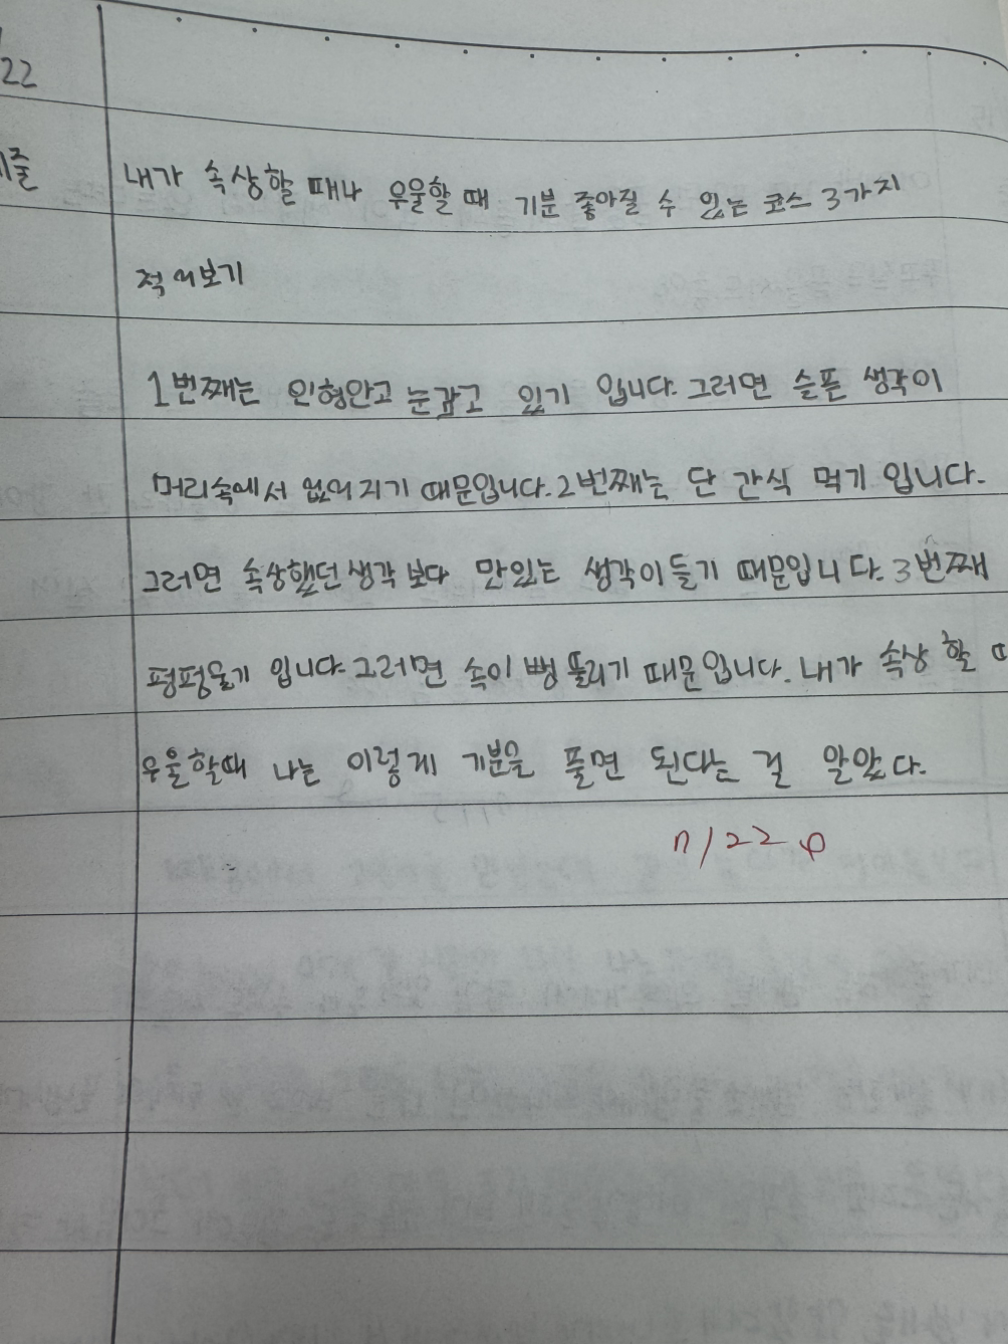 22
내가 속상할 때나 우울할 때 기분 좋아질 수 있는 코스 3가지
적어보기
1번째는 인형안고 눈감고 있기 입니다. 그러면 슬픈 생각이
머리속에서 없어지기 때문입니다. 2번째는 단 간식 먹기 입니다.
그러면 속상했던 생각 보다 맛있는 생각이 들기 때문입니다. 3번째
펑펑울기 입니다. 그러면 속이 뻥 뚤리기 때문입니다. 내가 속상 할
우울할때 나는 이렇게 기분을 풀면 된다는 걸 알았다.